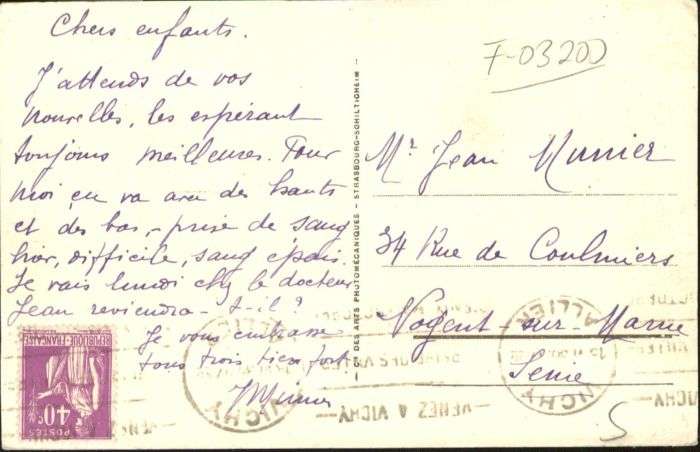 Chers enfants.
J'attends de vos
nouvelles, les espérant
toujours meilleures. Pour
moi, ça va avec des hauts
et des bas, - prise de sang
hier, difficile, sang épais.
Je vais lundi chez le docteur
Jean reviendra-t-il?
Je vous embrasse
tous trois bien fort
F-03200
Mr Jean Munier
34 Rue de Coulmiers
Nogent-sur-Marne
Seine
CIE DES ARTS PHOTOMÉCANIQUES - STRASBOURG-SCHILTIGHEIM -
REPUBLIQUE-FRANÇAISE
POSTES
40c
VICHY
ALLIER
VENEZ A VICHY
VICHY
ALLIER
5